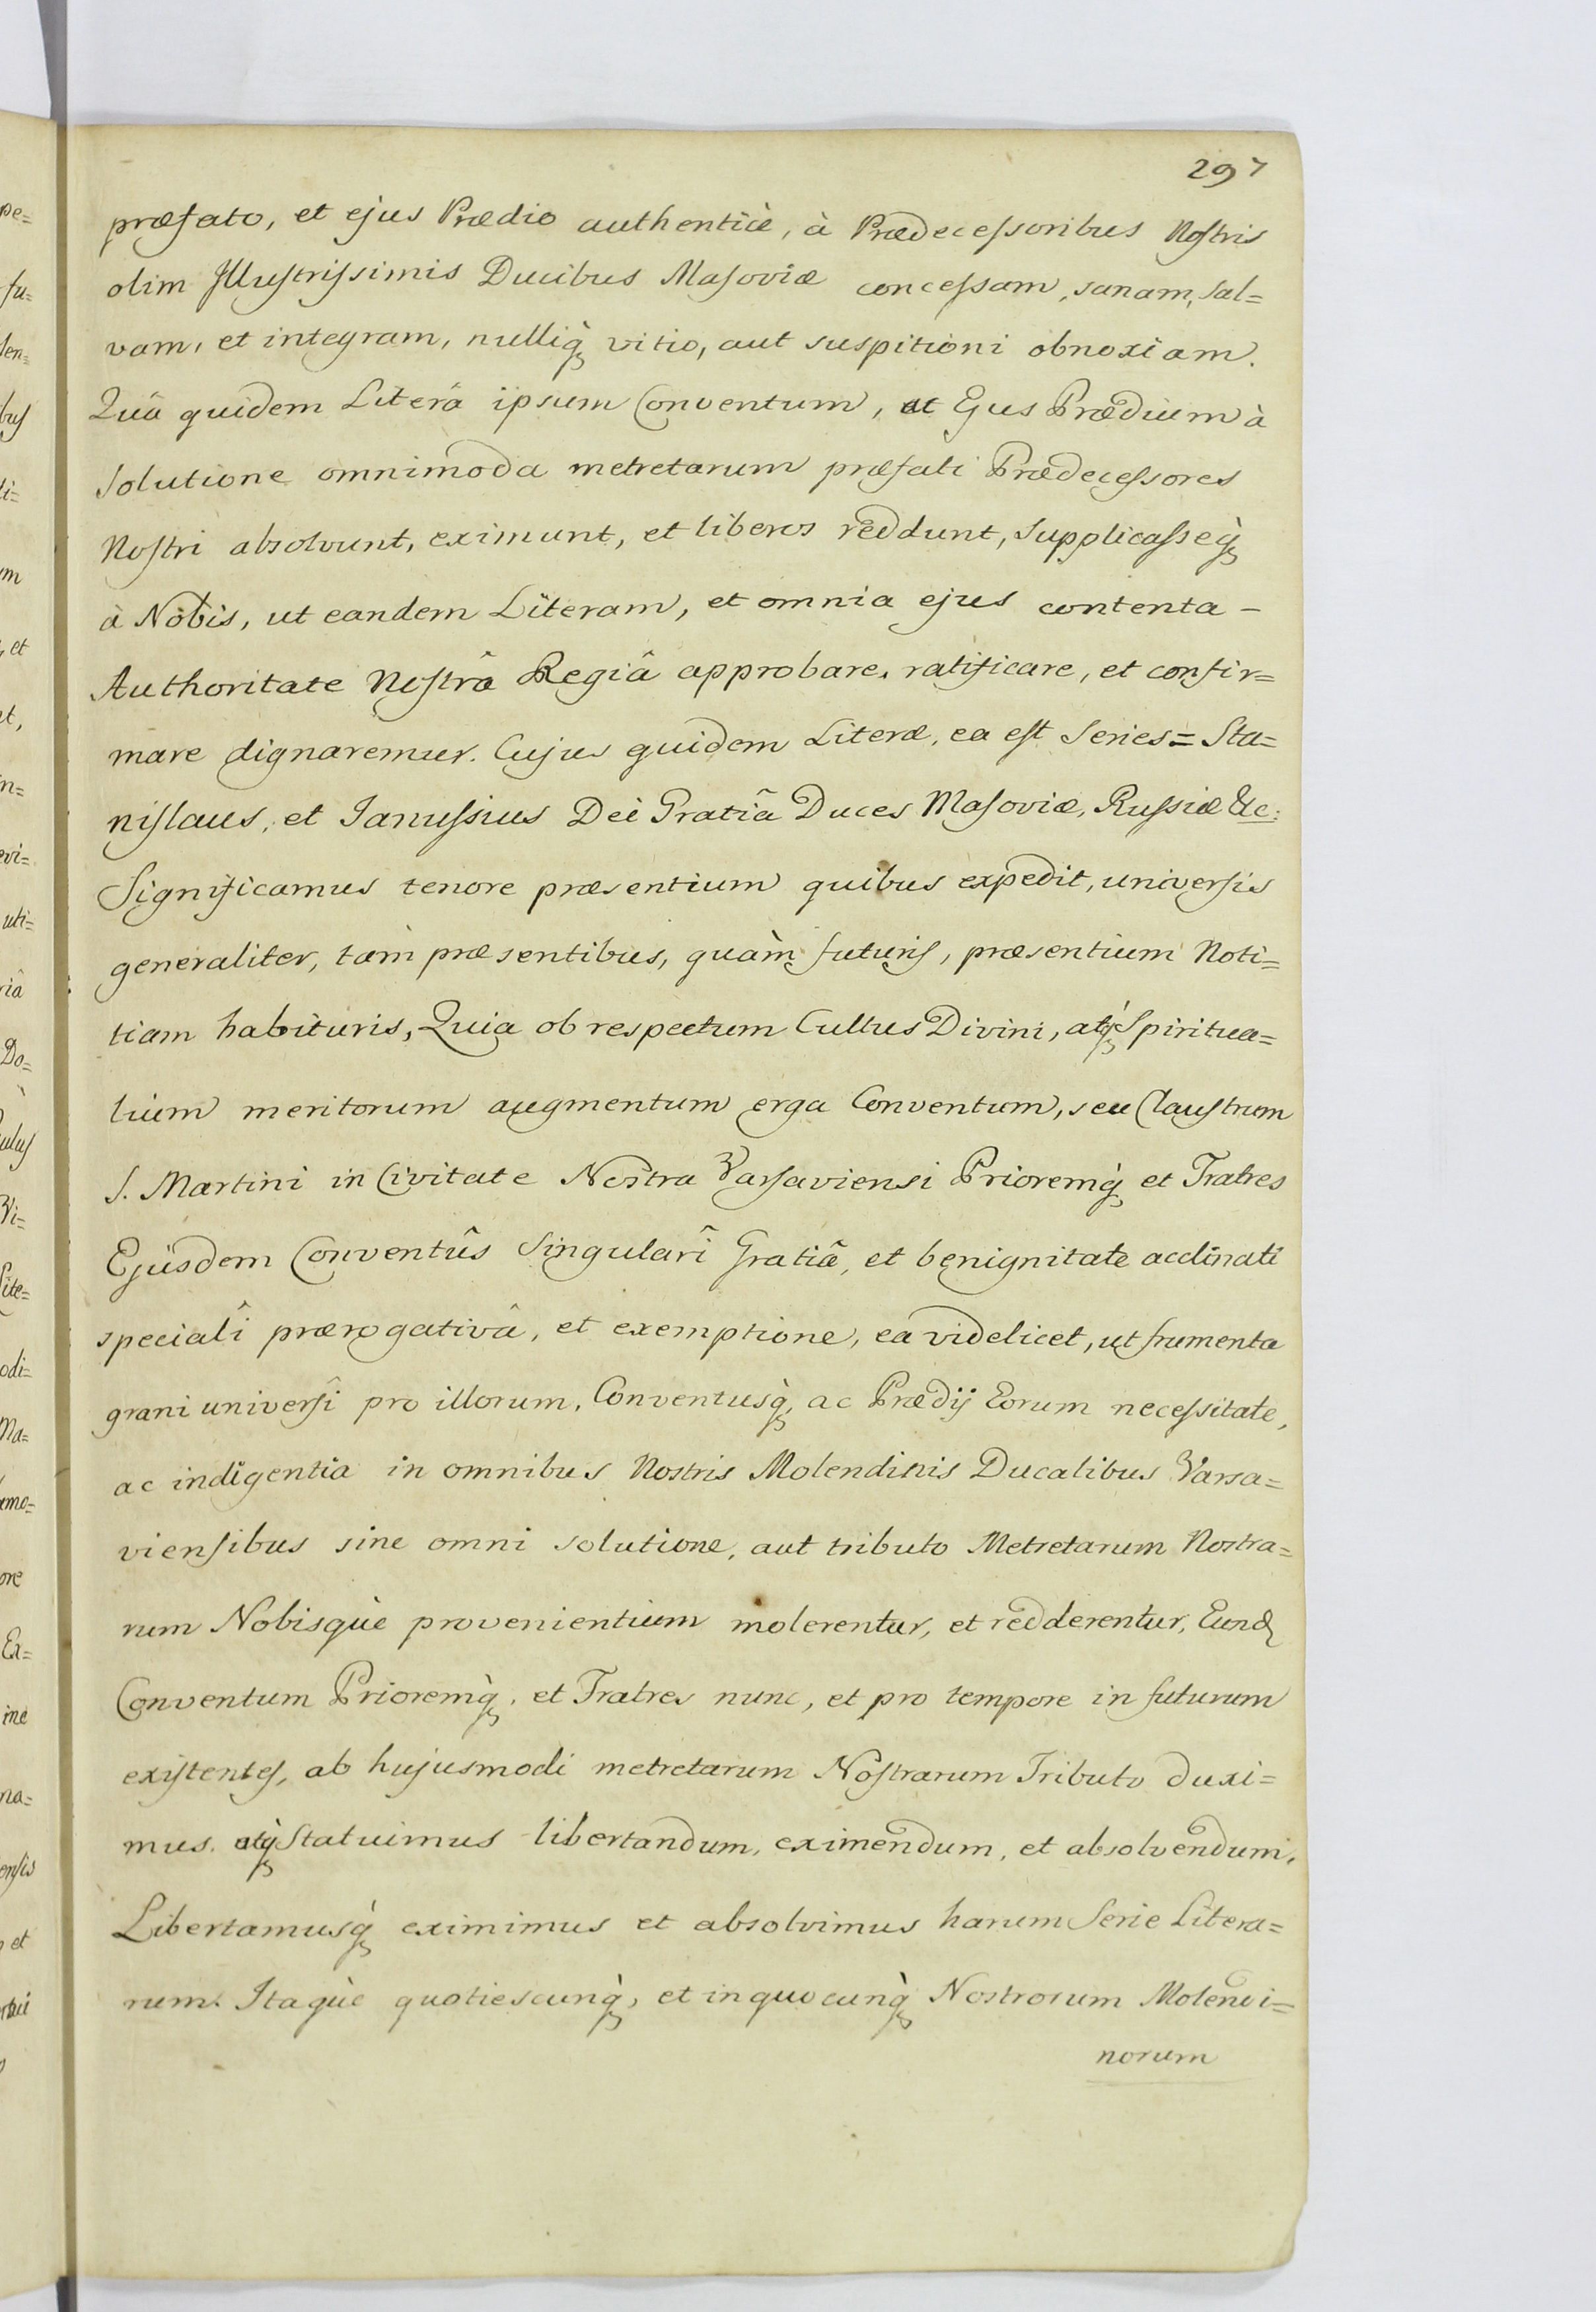 297
præfato, et ejus Prædio authenticè, à Prædecessoribus Nostris
olim Illustrissimis Ducibus Masoviæ concessam, sanam, sal=
vam, et integram, nulliq̀ vitio, aut suspitioni obnoxiam.
Quâ quidem Literâ ipsum Conventum, ac Ejus Prædium à
solutione omnimoda metretarum præfati Prædecessores
Nostri absolvunt, eximunt, et liberos reddunt, supplicasseq̀
à Nobis, ut eandem Literam, et omnia ejus contenta -
Authoritate Nostrâ Regiâ approbare, ratificare, et confir=
mare dignaremur. Cujus quidem Literæ, ea est Series = Sta=
nislaus, et Janussius Dei Gratiâ Duces Masoviæ, Russiæ &c:
Significamus tenore præsentium quibus expedit, universis
generaliter, tam præsentibus, quàm futuris, præsentium Noti=
tiam habituris, Quia ob respectum Cultus Divini, atq̀ Spiritua=
lium meritorum augmentum erga Conventum, seu Claustrum
S. Martini in Civitate Nostra Varsaviensi Prioremq̀ et Fratres
Ejusdem Conventûs Singularî Gratiâ, et benignitate acclinati
specialî prærogativâ, et exemptione, ea videlicet, ut frumenta
grani universî pro illorum, Conventusq̀, ac Prædij Eorum necessitate,
ac indigentia in omnibus Nostris Molendinis Ducalibus Varsa=
viensibus sine omni solutione, aut tributo Metretarum Nostra=
rum Nobisquè provenientium molerentur, et redderentur, Eund
Conventum Prioremq̀, et Fratres nunc, et pro tempore in futurum
existentes, ab hujusmodi metretarum Nostrarum Tributo duxi=
mus, atq̀ Statuimus libertandum, eximendum, et absolvendum,
Libertamusq̀ eximimus et absolvimus harum Serie Litera=
rum. Itaquè quotiescunq̀, et in quocunq̀ Nostrorum Molendi=
norum